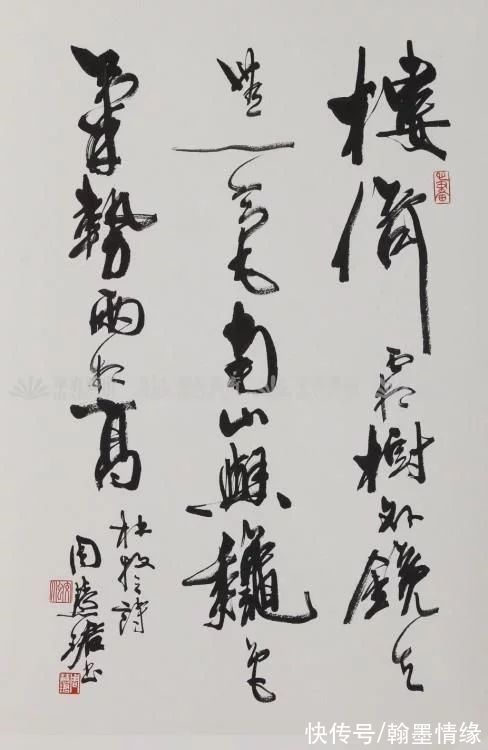 樓倚霜樹外鏡天
無一毫南山與龝色
氣勢兩相高
杜牧之詩
周慧珺书
快传号/翰墨情缘